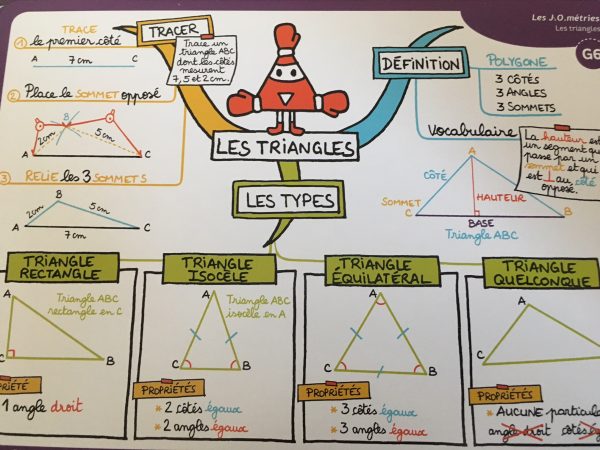 Les J.O.métries
Les triangles
G6
TRACER
Trace un
triangle ABC
dont les côtés
mesurent
7, 5 et 2 cm.
TRACE
1 le premier côté
A 7cm C
2 Place le SOMMET opposé
B
2cm 5cm
A C
3 RELIE les 3 SOMMETS
B
2cm 5cm
A 7cm C
LES TRIANGLES
DÉFINITION
POLYGONE
3 CÔTÉS
3 ANGLES
3 SOMMETS
Vocabulaire
La hauteur est
un segment qui
passe par un
sommet et qui
est ⊥ au côté
opposé.
A
CÔTÉ
HAUTEUR
SOMMET
C B
BASE
Triangle ABC
LES TYPES
TRIANGLE
RECTANGLE
A
Triangle ABC
rectangle en C
C B
1 angle droit
TRIANGLE
ISOCÈLE
A
Triangle ABC
isocèle en A
C B
PROPRIÉTÉS
* 2 côtés égaux
* 2 angles égaux
TRIANGLE
ÉQUILATÉRAL
A
C B
PROPRIÉTÉS
* 3 côtés égaux
* 3 angles égaux
TRIANGLE
QUELCONQUE
A
C
PROPRIÉTÉS
* AUCUNE
angle droit